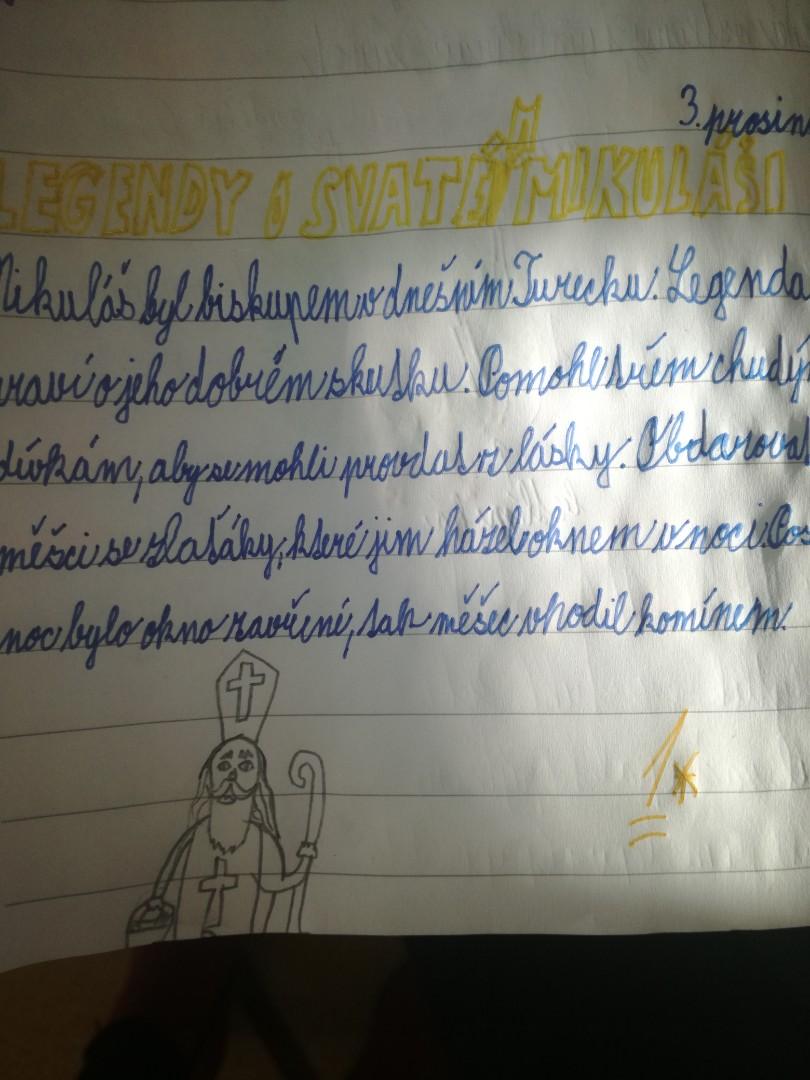 3. prosin
LEGENDY O SVATÉM MIKULÁŠI
Mikuláš byl biskupem v dnešním Turecku. Legenda
praví o jeho dobrém skutku. Pomohl třem chudým
dívkám, aby se mohli provdat z lásky. Obdaroval
měšci se zlaťáky, které jim házel oknem v noci.
noc bylo okno zavřené, tak měšec vhodil komínem.
1*